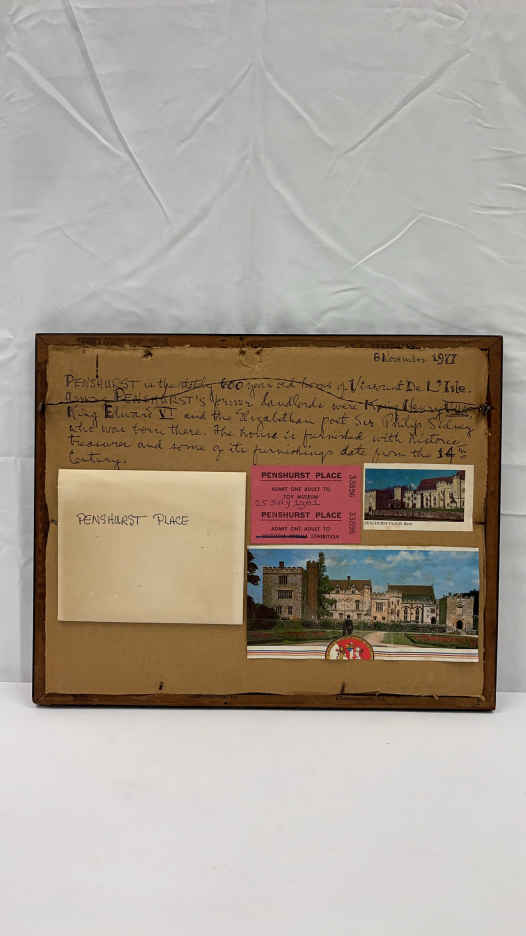 6 November 1977
PENSHURST is the 600 year old home of Viscount De L'Isle.
PENSHURST'S former landlords were King Henry
King Edward VI and the Elizabethan poet Sir Philip Sidney
who was born there. The house is furnished with historic
treasures and some of its furnishings date from the 14th
Century.
PENSHURST PLACE
PENSHURST PLACE
ADMIT ONE ADULT TO
TOY MUSEUM
25 July 1982
33896
PENSHURST PLACE
ADMIT ONE ADULT TO
EXHIBITION
PENSHURST PLACE Kent